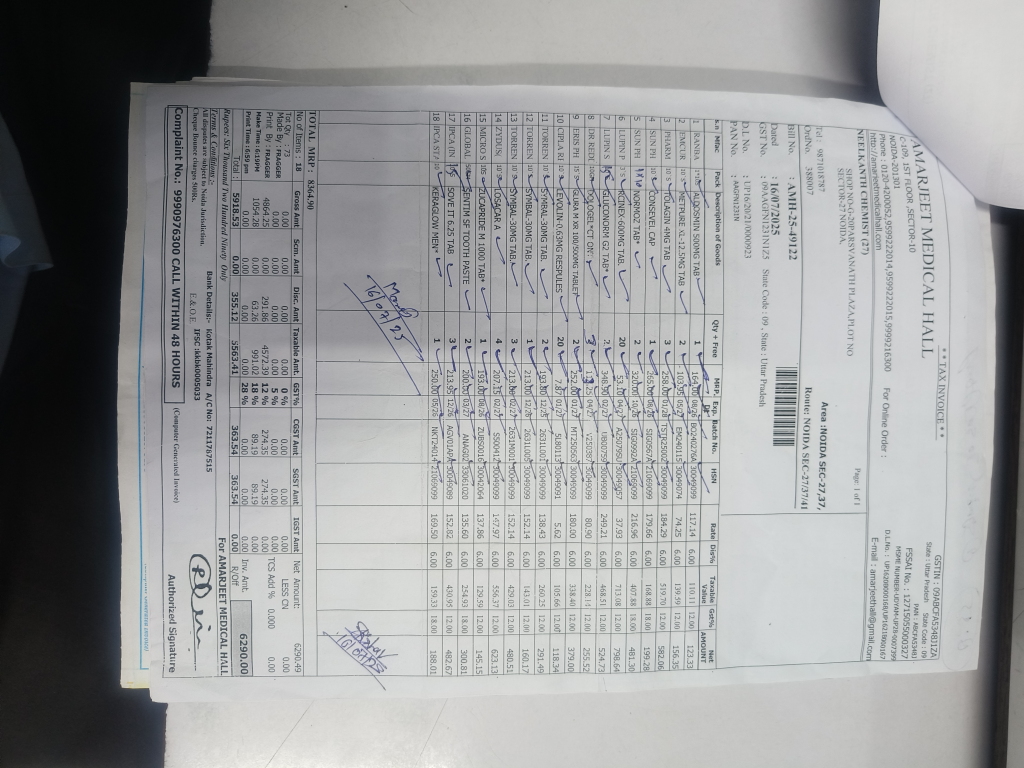 ** TAX INVOICE **
Page 1 of 1
AMARJEET MEDICAL HALL
C-109, 1ST FLOOR ,SECTOR-10
NOIDA-201301
Phone : 0120-4200052,9599222014,9599222015,9999216300
http://amarjeetmedicalhall.com
For Online Order :
GSTIN : 09ABCFA5348J1ZA
State : Uttar Pradesh State Code : 09
PAN : ABCFA5348J
FSSAI No. : 12715055000327
D.L.No. :
E-mail : amarjeethall@gmail.com
NEELKANTH CHEMIST (27)
SHOP NO-G/RIPARSVANATH PLAZA,PLOT NO
SECTOR-27 NOIDA,
Tel : 9871018787
OrdNo. 388007
Area :NOIDA SEC-27,37,
Route: NOIDA SEC-27/37/41
Bill No. : AMH-25-49122
Dated : 16/07/2025
GST No. : State Code : 09 , State : Uttar Pradesh
D.L No. : UP16/20/21/0000923
PAN No.
S.n Mfac Pack Description of Goods Qty + Free MRP. Exp. Batch No. HSN Rate Dis% Taxable Value Gst% Net AMOUNT
1 RANBA VALDOSIN 500MG TAB 1 30049099 117.14 6.00 110.11 12.00 123.33
2 EMCUR METPURE XL-12.5MG TAB 2 EM240115 30049074 74.25 6.00 139.59 12.00 156.35
3 PHARM TOLAGIN 4MG TAB 3 258.00 01/28 30049099 184.29 6.00 519.70 12.00 582.06
4 SUN PH CONSEVEL CAP 1 SIG0567A 21069099 179.66 6.00 168.88 18.00 199.28
5 SUN PH NORMOZ TAB* 2 320.00 10/26 SIG0992A 21069099 216.96 6.00 407.88 18.00 481.30
6 LUPIN P RCINEX-600MG TAB. 20 37.93 6.00 713.08 12.00 798.64
7 LUPIN S GLUCONORM G2 TAB* 2 348.90 02/27 30049099 249.21 6.00 468.51 12.00 524.73
8 DR REDD 3 30049099 80.90 6.00 228.14 12.00 255.52
9 ERIS PH GLURA M XR 100/500MG TABLET 2 252.00 01/27 MT250503 30049099 180.00 6.00 338.40 12.00 379.00
10 CIPLA RI LEVOLIN-0.63MG RESPULES 20 7.87 01/27 30049091 5.62 6.00 105.66 12.00 118.34
11 TORREN SYMBAL-30MG TAB. 2 12/25 30049099 138.43 6.00 260.25 12.00 291.49
12 TORREN SYMBAL-30MG TAB. 1 213.00 12/26 30049099 152.14 6.00 143.01 12.00 160.17
13 TORREN SYMBAL-30MG TAB. 3 213.00 02/27 30049099 152.14 6.00 429.03 12.00 480.51
14 ZYDUS LOSACAR A 4 207.15 02/27 30049099 147.97 6.00 556.37 12.00 623.13
15 MICRO S ZUCAPRIDE M 1000 TAB* 1 193.00 08/26 ZUBS0016 30042064 137.86 6.00 129.59 12.00 145.15
16 GLOBAL SENTIM SF TOOTH PASTE 2 200.00 03/27 33061020 135.60 6.00 254.93 18.00 300.81
17 IPCA (IN SOVE IT 6.25 TAB 3 213.95 30049089 152.82 6.00 430.95 12.00 482.67
18 IPCA KERAGLOW MEN* 1 250.00 05/26 21069099 169.50 6.00 159.33 18.00 188.01
Manoj
16/07/25
TOTAL MRP : 8364.90
No of Items : 18
Tot Qty. : 73
Made By : FRAGGER
Print By : FRAGGER
Make Time : 6:19PM
Print Time : 6:59 pm
Gross Amt Scm. Amt Disc. Amt Taxable Amt. GST% CGST Amt SGST Amt IGST Amt
0.00 0.00 0.00 0.00 0 % 0.00 0.00 0.00
0.00 0.00 0.00 0.00 5 % 0.00 0.00 0.00
4864.25 0.00 291.86 4572.39 12 % 274.35 274.35 0.00
1054.28 0.00 63.26 991.02 18 % 89.19 89.19 0.00
0.00 0.00 0.00 0.00 28 % 0.00 0.00 0.00
Total : 5918.53 0.00 355.12 5563.41 363.54 363.54 0.00
Net Amount: 6290.49
LESS CN 0.00
TCS Add % 0.000 0.00
R/Off
Inv. Amt. 6290.00
Rupees: Six Thousand Two Hundred Ninety Only
Terms & Conditions :-
All disputes are subject to Noida Jurisdiction.
Cheque Bounce charge 500Rs.
E.& O.E
Bank Details:- Kotak Mahindra A/C No: 7211787515
IFSC :kkbk0005033
For AMARJEET MEDICAL HALL
Authorized Signature
Complaint No.: 9990976300 CALL WITHIN 48 HOURS
(Computer Generated Invoice)